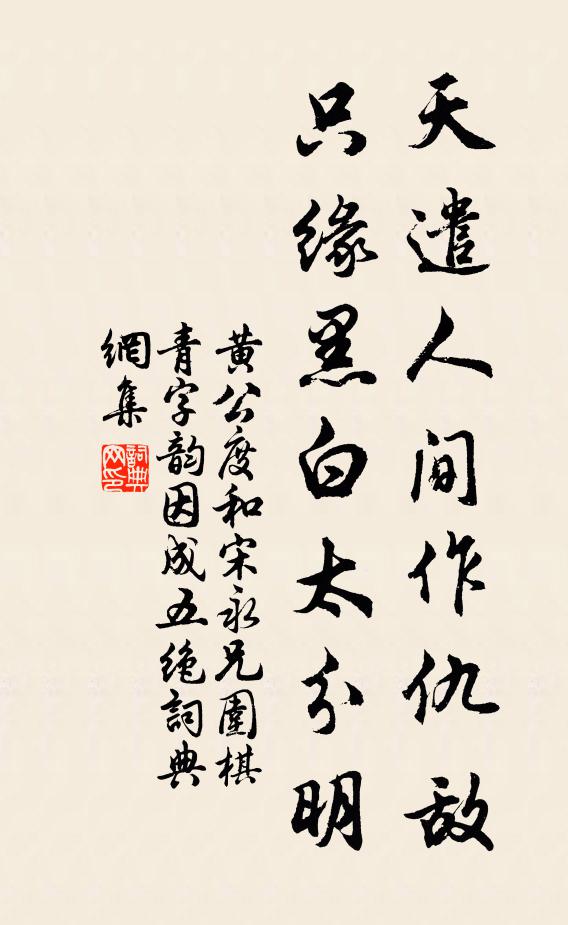 天遣人间作仇敌
只缘黑白太分明
黄公度和宋永兄圍棋
青字韵因成五绝詞典
網集
詞典
网印